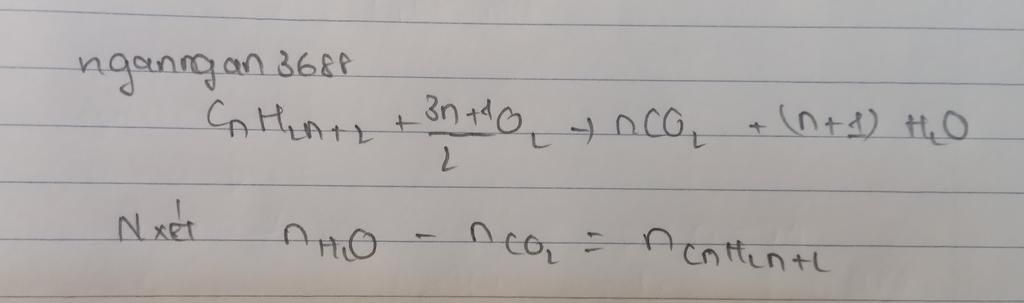 nganngan3688
CnH2n+2 + 3n+1/2 O2 → nCO2 + (n+1) H2O
N xét nH2O - nCO2 = nCnH2n+2